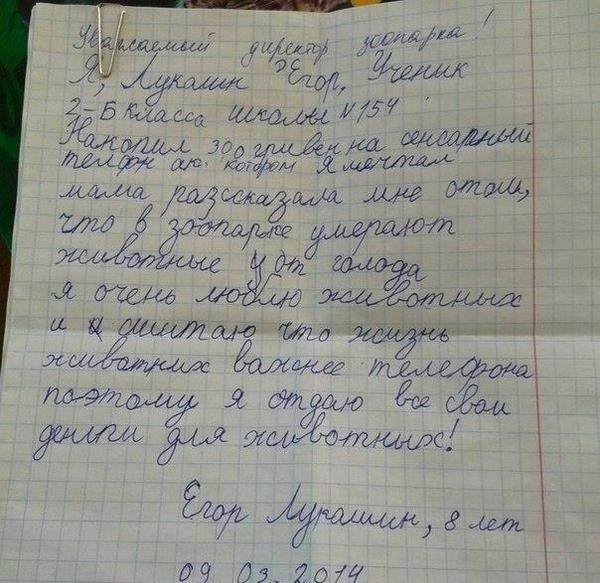 Уважаемый директор зоопарка!
Я, Лукашин Егор, Ученик
2-Б класса школы №154
Накопил 300 гривен на сенсарный
телфон ак. котором я мечтал
мама разссказала мне отом,
что в зоопарке умерают
животные у от голода
я очень люблю животных
и я сшитаю что жизнь
животних важнее телефона
поэтому я отдаю все свои
деньги для животных!
Егор Лукашин, 8 лет
09.03.2014